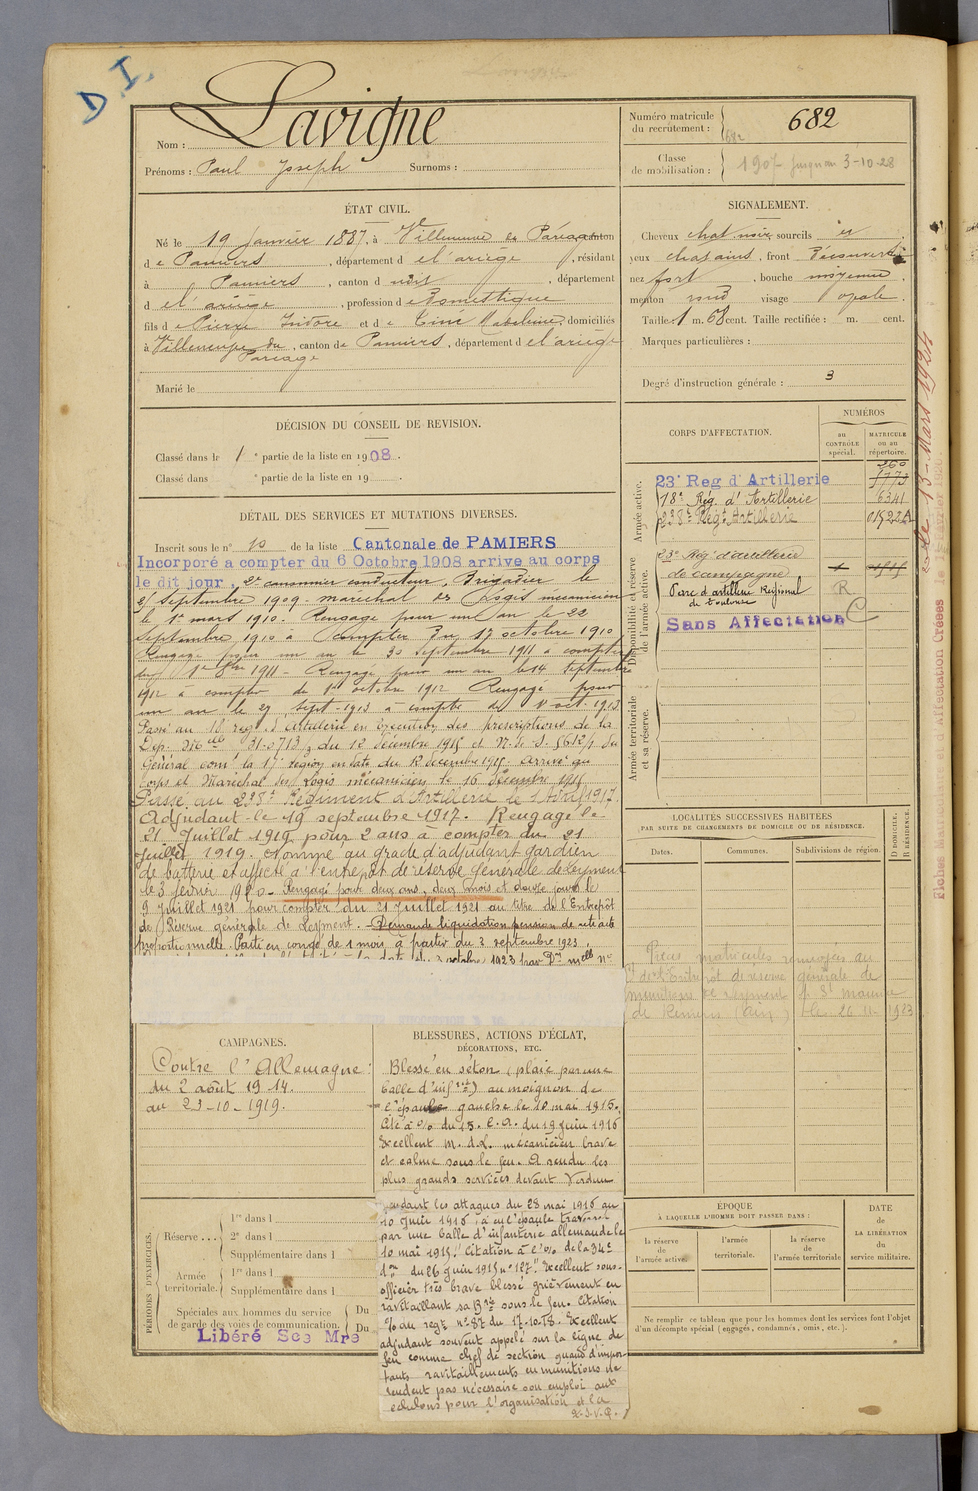 D I.
Nom : Lavigne
Prénoms : Paul Joseph Surnoms :
Numéro matricule du recrutement : 682
682
Classe de mobilisation : 1907 jusqu'au 3-10-28
ÉTAT CIVIL.
Né le 19 Janvier 1887, à Villeneuve du Paréage canton
de Pamiers, département de l'ariège, résidant
à Pamiers, canton d udit, département
d e l'ariège, profession de Domestique
fils de Pierre Isidore et de Madeleine, domiciliés
à Villeneuve du Paréage, canton de Pamiers, département de l'ariège
Marié le
SIGNALEMENT.
Cheveux chat noir sourcils id
yeux chatains, front Découvert
nez fort, bouche moyenne
menton rond visage ovale.
Taille: 1 m. 68 cent. Taille rectifiée : m. cent.
Marques particulières :
Degré d'instruction générale : 3
DÉCISION DU CONSEIL DE REVISION.
Classé dans la 1e partie de la liste en 1908.
Classé dans e partie de la liste en 19
DÉTAIL DES SERVICES ET MUTATIONS DIVERSES.
Inscrit sous le n° 10 de la liste Cantonale de PAMIERS
Incorporé à compter du 6 Octobre 1908 arrivé au corps
le dit jour, 2e canonnier conducteur, Brigadier le
21 Septembre 1909. maréchal des Logis mécanicien
le 1er mars 1910. Rengagé pour un an le 22
Septembre 1910 à compter du 17 octobre 1910
Rengagé pour un an le 30 septembre 1911 à compter
du 1er 8bre 1911 - Rengagé pour un an le 14 Septembre
1912 à compter du 1er octobre 1912 Rengagé pour
un an le 29 sept-1913 à compter du 1 oct. 1913
Passé au 18 rég. d'Artillerie en exécution des prescriptions de la
Dép. du 12 décembre 1915 et
Général comt la 17e région en date du 12 décembre 1915. Arrivé au
corps et Maréchal des Logis mécanicien le 16 décembre 1915
Passé au 238e Régiment d'Artillerie le 1 Avril 1917.
Adjudant le 19 septembre 1917. Rengagé le
21 Juillet 1919 pour 2 ans à compter du 21
Juillet 1919. Nommé au grade d'adjudant gardien
de batterie et affecté à l'entrepôt de réserve générale de Leyment
le 3 février 1920 - Rengagé pour deux ans, deux mois et douze jours le
9 Juillet 1921 pour compter du 21 Juillet 1921 au titre de l'Entrepôt
de Réserve générale de Leyment. - Demande liquidation pension de retraite
proportionnelle. Parti en congé de 1 mois à partir du 3 septembre 1923.
octobre 1923 par
CORPS D'AFFECTATION.
NUMÉROS
au CONTRÔLE spécial.
MATRICULE ou au répertoire.
Armée active.
260
23e Reg d'Artillerie 1773
18e Rég. d'Artillerie 6341
238e Regt Artillerie
Disponibilité et réserve de l'armée active.
23e Rég. d'artillerie
de campagne
Parc d'artillerie Régional R.
de Toulouse
Sans Affectation C
Armée territoriale et sa réserve.
13 Mars 1924
LOCALITÉS SUCCESSIVES HABITÉES
PAR SUITE DE CHANGEMENTS DE DOMICILE OU DE RÉSIDENCE.
Dates.
Communes.
Subdivisions de région.
D DOMICILE. R RÉSIDENCE.
Pièces matricules renvoyées au
de l'Entrepôt de réserve générale de
munitions de Leyment p. St maurice
de Rémens (Ain) le 20-11-1923
CAMPAGNES.
Contre l'Allemagne :
du 2 août 1914.
au 23-10-1919.
BLESSURES, ACTIONS D'ÉCLAT,
DÉCORATIONS, ETC.
Blessé en séton (plaie par une
balle d'infrie) au moignon de
l'épaule gauche le 10 mai 1915.
Cité à l'o/ du 15. C.A. du 19 juin 1916
Excellent M.d.L. mécanicien brave
et calme sous le feu. A rendu les
plus grands services devant Verdun
pendant les attaques du 28 mai 1916 au
10 Juin 1916, a eu l'épaule traversée
par une balle d'infanterie allemande le
10 mai 1915. Citation à l'o/o de la 34e
don du 26 Juin 1915 n° 127. "Excellent sous-
officier très brave blessé grièvement en
ravitaillant sa Bie sous le feu. Citation
o/o du regt n° 87 du 17-10-18. Excellent
adjudant souvent appelé sur la ligne de
feu comme chef de section quand d'impor-
tants ravitaillements en munitions ne
rendent pas nécessaire son emploi aux
échelons pour l'organisation et la
T.S.V.P.
PÉRIODES D'EXERCICES.
Réserve...
1re dans l
2e dans l
Supplémentaire dans l
Armée territoriale.
1re dans l
Supplémentaire dans l
Spéciales aux hommes du service de garde des voies de communication.
Du
Du
Libéré Sce Mre
ÉPOQUE
À LAQUELLE L'HOMME DOIT PASSER DANS :
la réserve de l'armée active.
l'armée territoriale.
la réserve de l'armée territoriale
DATE de LA LIBÉRATION du service militaire.
Ne remplir ce tableau que pour les hommes dont les services font l'objet
d'un décompte spécial (engagés, condamnés, omis, etc.).